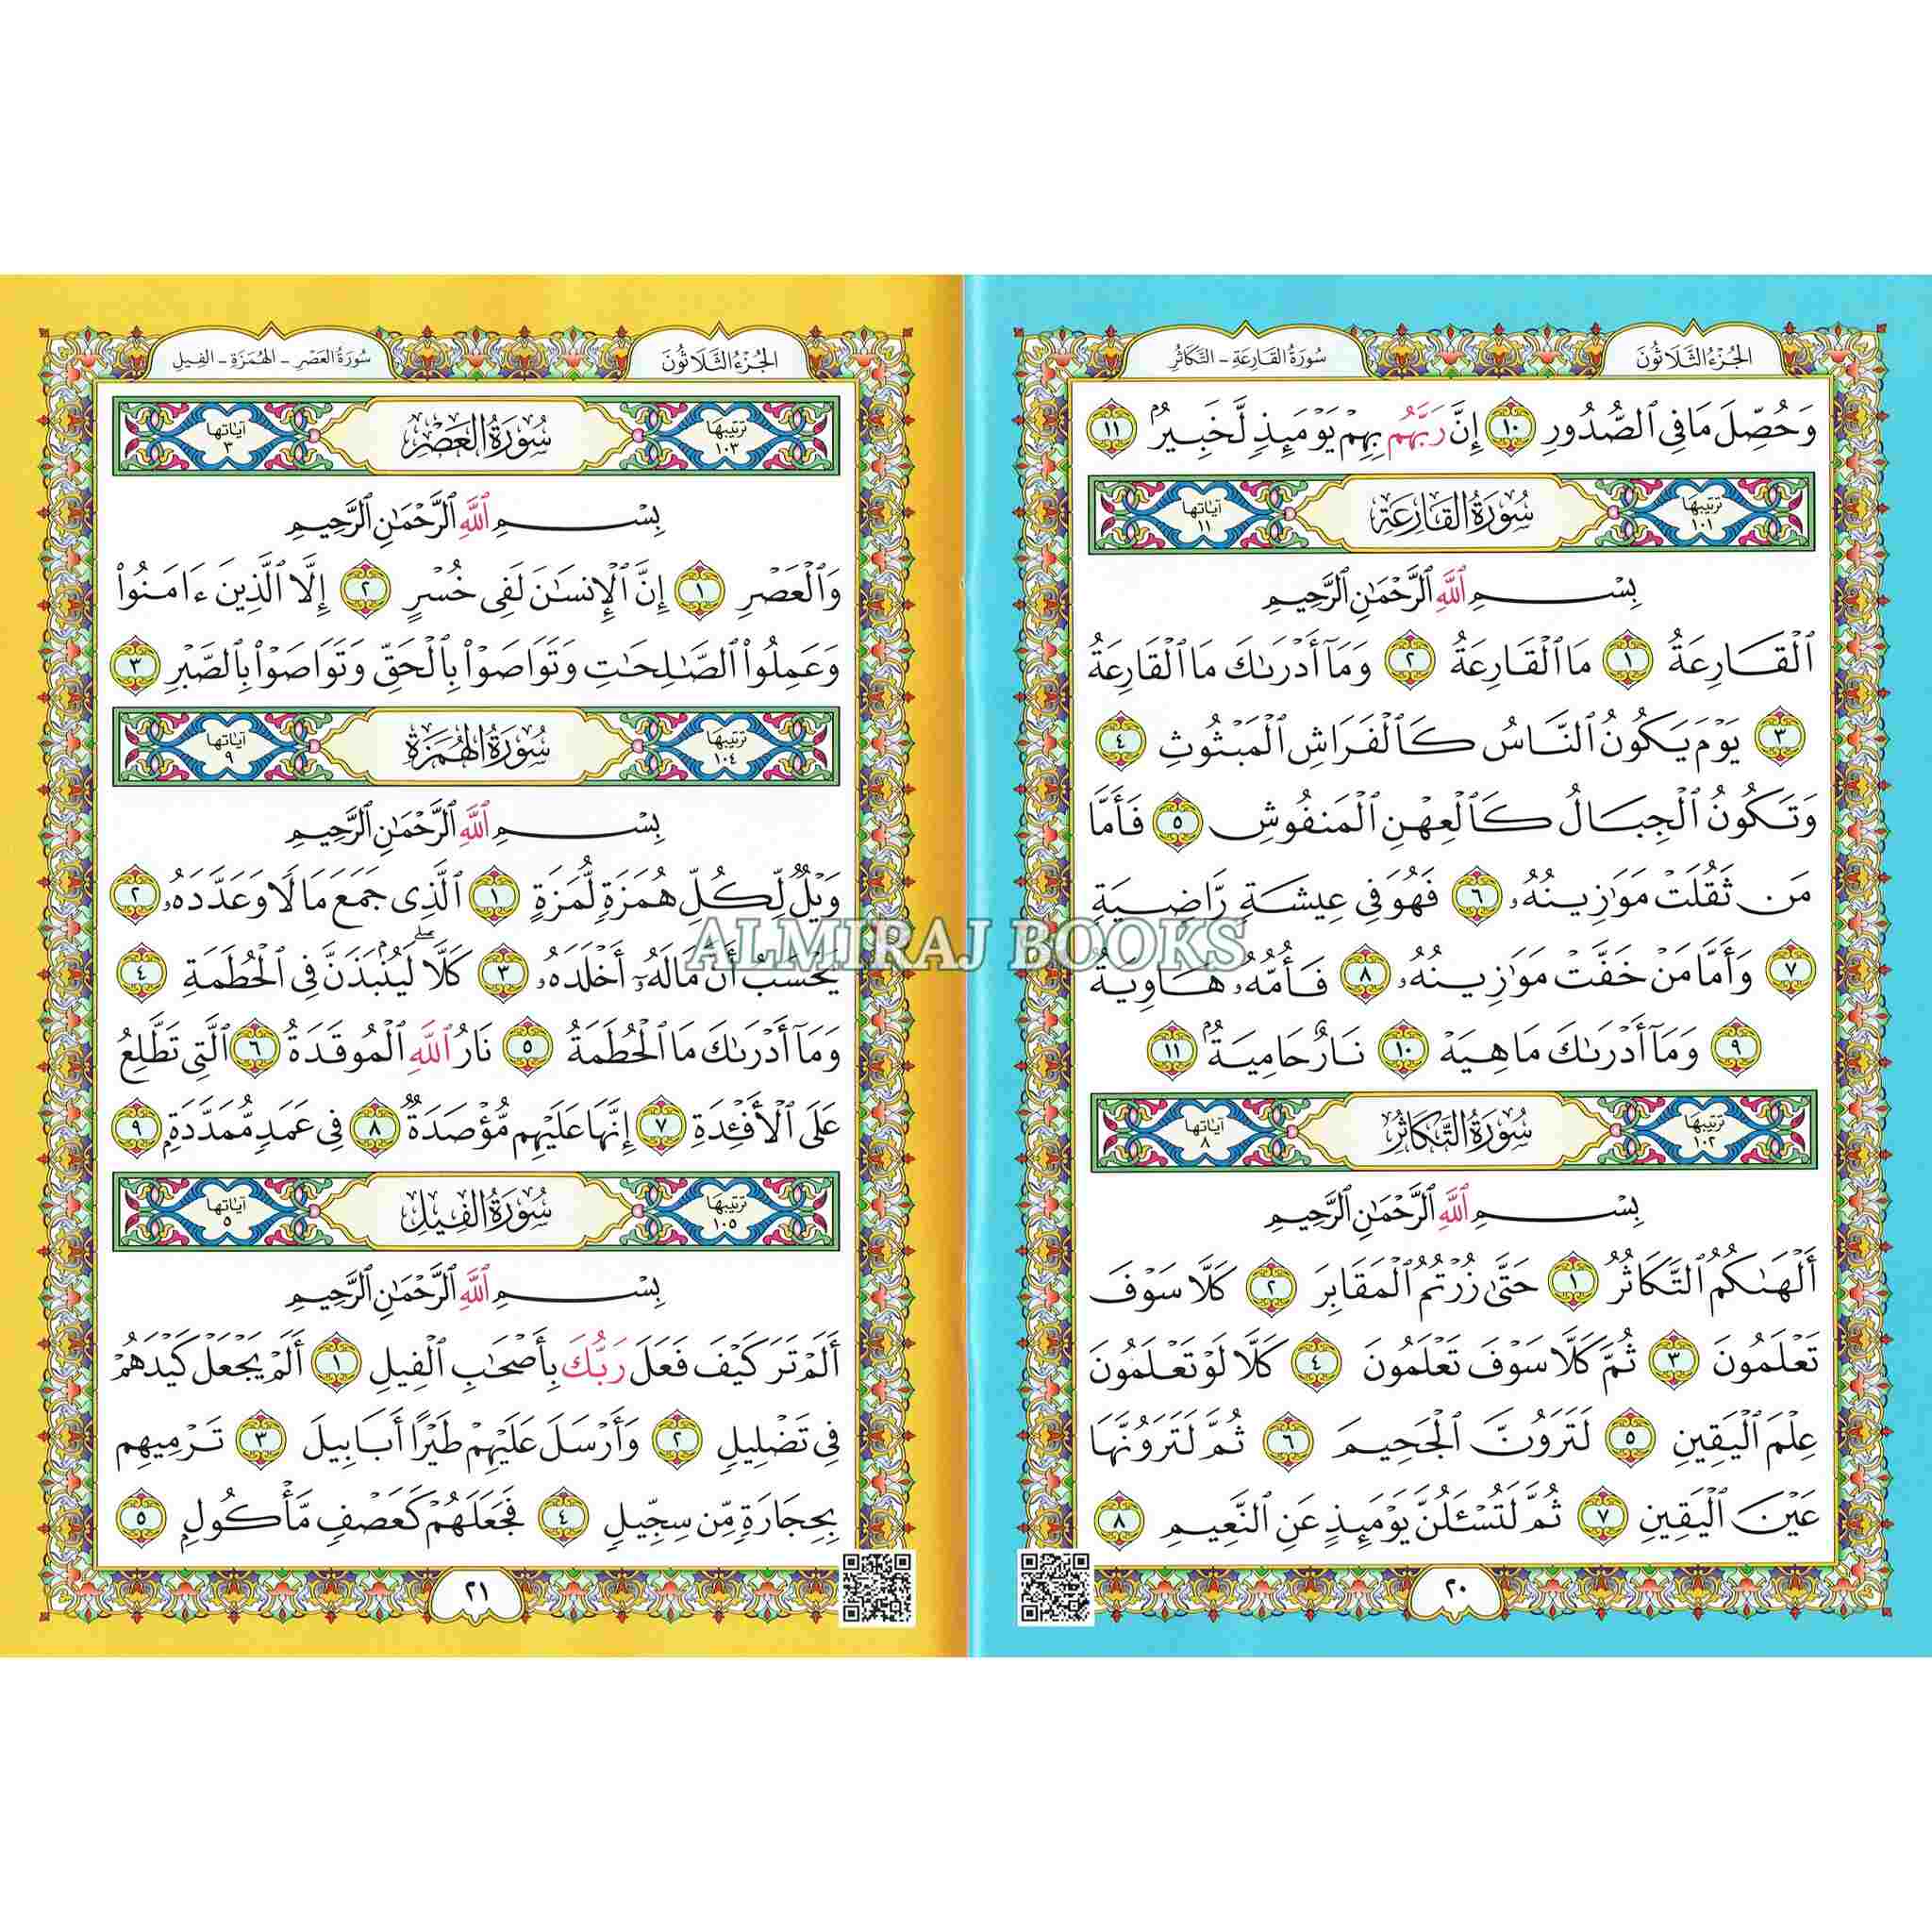 الجُزْءُ الثَّلَاثُونَ
سُورَةُ القَارِعَةِ - التَّكَاثُرُ
وَحُصِّلَ مَا فِي ٱلصُّدُورِ ١٠ إِنَّ رَبَّهُم بِهِمْ يَوْمَئِذٍ لَّخَبِيرٌۢ ١١
ترتيبها ١٠١ سُورَةُ القَارِعَةِ آياتها ١١
بِسْمِ ٱللَّهِ ٱلرَّحْمَٰنِ ٱلرَّحِيمِ
ٱلْقَارِعَةُ ١ مَا ٱلْقَارِعَةُ ٢ وَمَآ أَدْرَىٰكَ مَا ٱلْقَارِعَةُ
٣ يَوْمَ يَكُونُ ٱلنَّاسُ كَٱلْفَرَاشِ ٱلْمَبْثُوثِ ٤
وَتَكُونُ ٱلْجِبَالُ كَٱلْعِهْنِ ٱلْمَنفُوشِ ٥ فَأَمَّا
مَن ثَقُلَتْ مَوَٰزِينُهُۥ ٦ فَهُوَ فِي عِيشَةٍ رَّاضِيَةٍ
٧ وَأَمَّا مَنْ خَفَّتْ مَوَٰزِينُهُۥ ٨ فَأُمُّهُۥ هَاوِيَةٌ
٩ وَمَآ أَدْرَىٰكَ مَا هِيَهْ ١٠ نَارٌ حَامِيَةٌۢ ١١
ترتيبها ١٠٢ سُورَةُ التَّكَاثُرُ آياتها ٨
بِسْمِ ٱللَّهِ ٱلرَّحْمَٰنِ ٱلرَّحِيمِ
أَلْهَىٰكُمُ ٱلتَّكَاثُرُ ١ حَتَّىٰ زُرْتُمُ ٱلْمَقَابِرَ ٢ كَلَّا سَوْفَ
تَعْلَمُونَ ٣ ثُمَّ كَلَّا سَوْفَ تَعْلَمُونَ ٤ كَلَّا لَوْ تَعْلَمُونَ
عِلْمَ ٱلْيَقِينِ ٥ لَتَرَوُنَّ ٱلْجَحِيمَ ٦ ثُمَّ لَتَرَوُنَّهَا
عَيْنَ ٱلْيَقِينِ ٧ ثُمَّ لَتُسْـَٔلُنَّ يَوْمَئِذٍ عَنِ ٱلنَّعِيمِ ٨
٢٠
الجُزْءُ الثَّلَاثُونَ
سُورَةُ العَصْرِ - الهُمَزَةِ - الفِيلِ
ترتيبها ١٠٣ سُورَةُ العَصْرِ آياتها ٣
بِسْمِ ٱللَّهِ ٱلرَّحْمَٰنِ ٱلرَّحِيمِ
وَٱلْعَصْرِ ١ إِنَّ ٱلْإِنسَٰنَ لَفِي خُسْرٍ ٢ إِلَّا ٱلَّذِينَ ءَامَنُوا۟
وَعَمِلُوا۟ ٱلصَّٰلِحَٰتِ وَتَوَاصَوْا۟ بِٱلْحَقِّ وَتَوَاصَوْا۟ بِٱلصَّبْرِ ٣
ترتيبها ١٠٤ سُورَةُ الهُمَزَةِ آياتها ٩
بِسْمِ ٱللَّهِ ٱلرَّحْمَٰنِ ٱلرَّحِيمِ
وَيْلٌ لِّكُلِّ هُمَزَةٍ لُّمَزَةٍ ١ ٱلَّذِي جَمَعَ مَالًا وَعَدَّدَهُۥ ٢
يَحْسَبُ أَنَّ مَالَهُۥٓ أَخْلَدَهُۥ ٣ كَلَّا ۖ لَيُنۢبَذَنَّ فِي ٱلْحُطَمَةِ ٤
وَمَآ أَدْرَىٰكَ مَا ٱلْحُطَمَةُ ٥ نَارُ ٱللَّهِ ٱلْمُوقَدَةُ ٦ ٱلَّتِي تَطَّلِعُ
عَلَى ٱلْأَفْـِٔدَةِ ٧ إِنَّهَا عَلَيْهِم مُّؤْصَدَةٌ ٨ فِي عَمَدٍ مُّمَدَّدَةٍۭ ٩
ترتيبها ١٠٥ سُورَةُ الفِيلِ آياتها ٥
بِسْمِ ٱللَّهِ ٱلرَّحْمَٰنِ ٱلرَّحِيمِ
أَلَمْ تَرَ كَيْفَ فَعَلَ رَبُّكَ بِأَصْحَٰبِ ٱلْفِيلِ ١ أَلَمْ يَجْعَلْ كَيْدَهُمْ
فِي تَضْلِيلٍ ٢ وَأَرْسَلَ عَلَيْهِمْ طَيْرًا أَبَابِيلَ ٣ تَرْمِيهِم
بِحِجَارَةٍ مِّن سِجِّيلٍ ٤ فَجَعَلَهُمْ كَعَصْفٍ مَّأْكُولٍۭ ٥
٢١
ALMIRAJ BOOKS